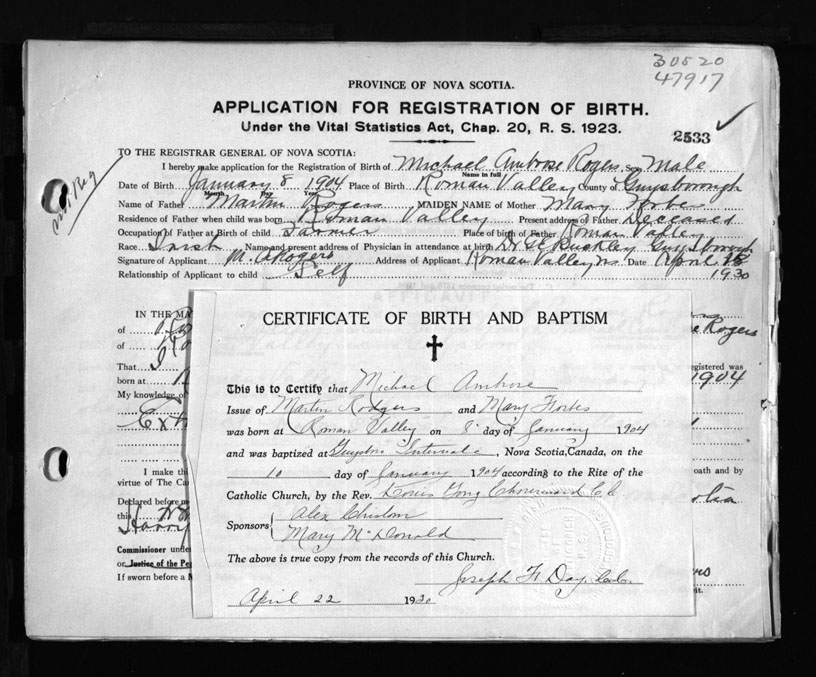 30520
47917
PROVINCE OF NOVA SCOTIA.
APPLICATION FOR REGISTRATION OF BIRTH.
Under the Vital Statistics Act, Chap. 20, R. S. 1923.
2533
TO THE REGISTRAR GENERAL OF NOVA SCOTIA:
I hereby make application for the Registration of Birth of Michael Ambrose Rogers Sex Male
Name in full
Date of Birth January 8 1904 Place of Birth Roman Valley County of Guysborough
Month Day Year
Name of Father Martin Rogers MAIDEN NAME of Mother Mary Forbes
Residence of Father when child was born Roman Valley Present address of Father Deceased
Occupation of Father at Birth of child Farmer Place of birth of Father Roman Valley
Race Irish Name and present address of Physician in attendance at birth Dr Buckley Guysborough
Signature of Applicant M. A Rogers Address of Applicant Roman Valley NS Date April 18
Relationship of Applicant to child Self 1930
IN THE MA
of
of
Rogers
That
registered was
born at
1904
My knowledge of
I make thi
oath and by
virtue of The Ca
Declared before m
this
Harry
Commissioner unde
or Justice of the Pe
If sworn before a
CERTIFICATE OF BIRTH AND BAPTISM
This is to Certify that Michael Ambrose
Issue of Martin Rodgers and Mary Forbes
was born at Roman Valley on 8 day of January 1904
and was baptized at Guysboro Intervale, Nova Scotia, Canada, on the
10 day of January 1904 according to the Rite of the
Catholic Church, by the Rev.
Sponsors Alex Chisolm
Mary McDonald
The above is true copy from the records of this Church.
Joseph H Day
April 22 1930